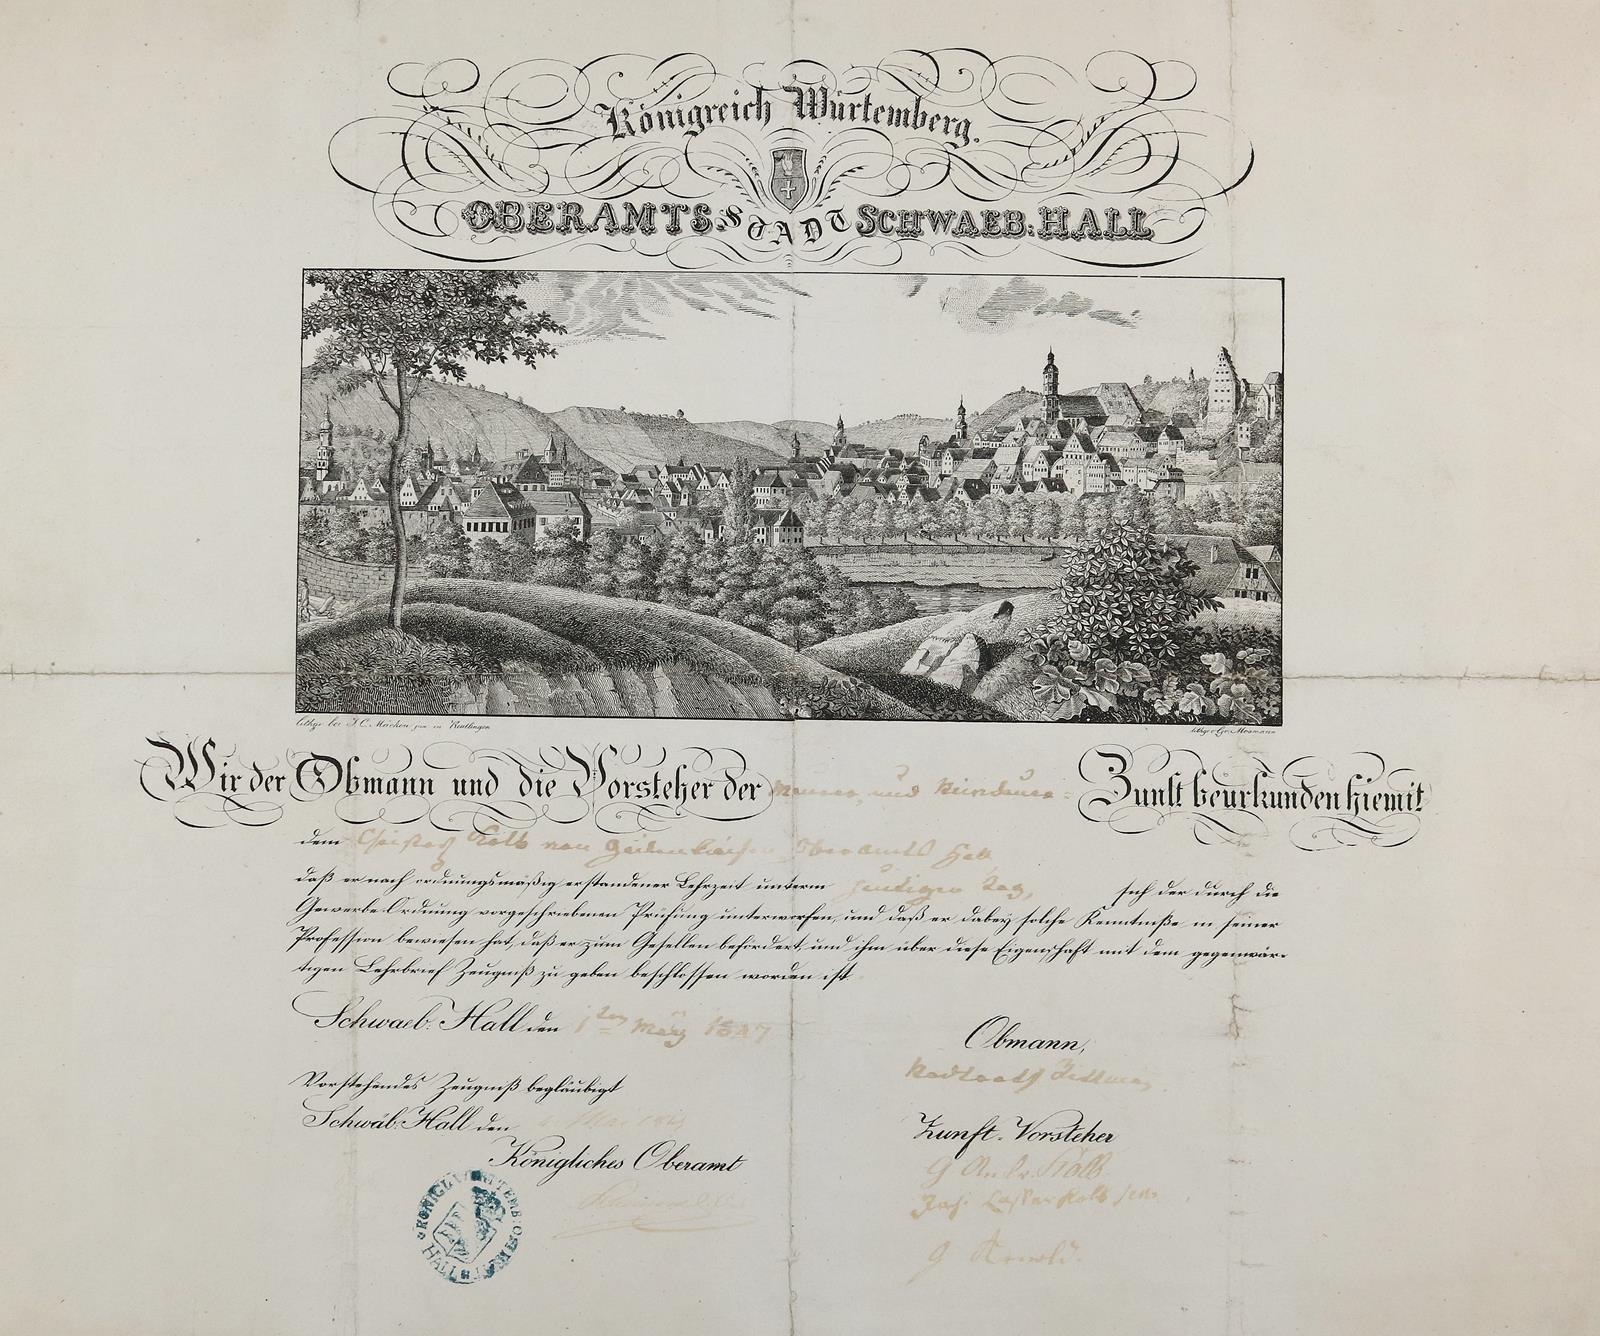 Königreich Würtemberg.
OBERAMTS-STADT SCHWAEB: HALL
lithgr. bei J. C. Mäcken jun. in Reutlingen
lithgr. v. Gr. Mosmann
Wir der Obmann und die Vorsteher der Maurer und Steinhauer- Zunft beurkunden hiemit
dem Christoph Kolb von Oberamts Hall
daß er nach ordnungsmäßig erstandener Lehrzeit unterm heutigen Tag, sich der durch die
Gewerbe-Ordnung vorgeschriebenen Prüfung unterworfen, und daß er dabey solche Kenntniße in seiner
Profession bewiesen hat, daß er zum Gesellen befördert, und ihm über diese Eigenschaft mit dem gegenwär-
tigen Lehrbrief Zeugniß zu geben beschlossen worden ist
Schwaeb. Hall den 1ten März 1847
Obmann,
Vorstehendes Zeugniß begläubigt
Schwäb. Hall den
Zunft-Vorsteher
Königliches Oberamt
Kolb
Kolb sen.
G Arnold.
KÖNIGL. WÜRTTEMB. OBERAMT
HALL